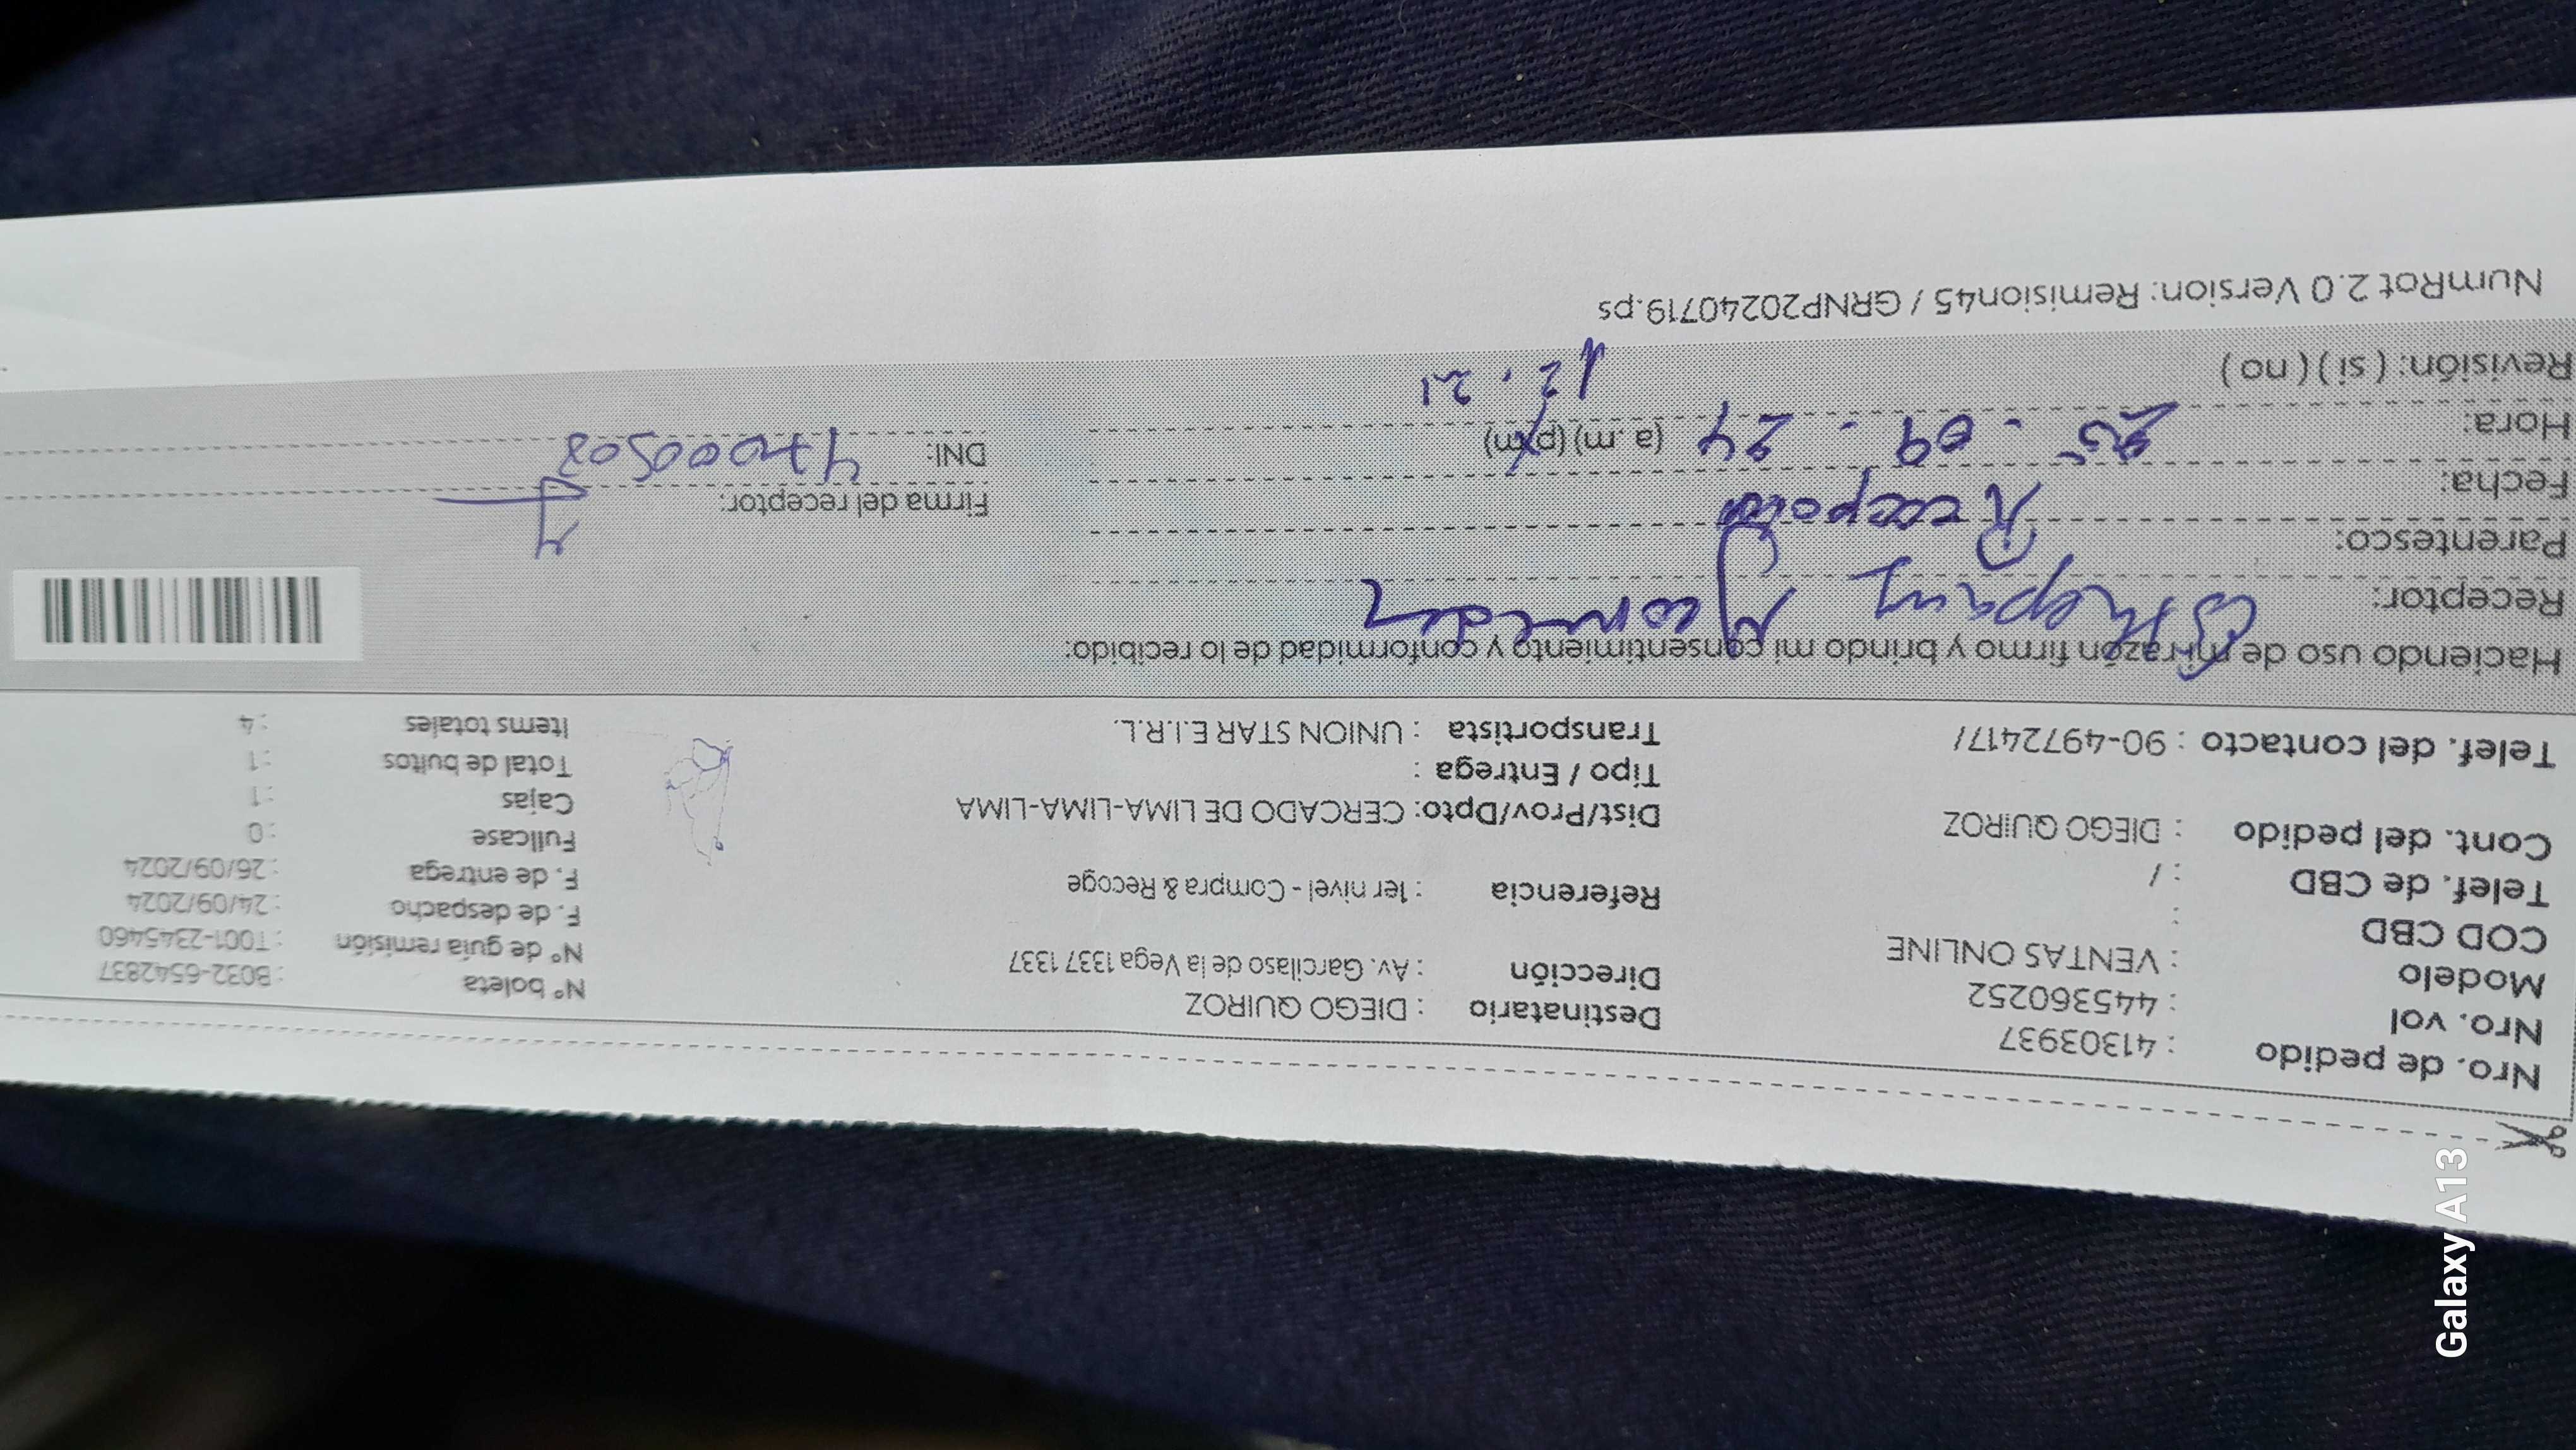 Nro. de pedido : 41303937
Nro. vol : 445360252
Modelo : VENTAS ONLINE
COD CBD :
Telef. de CBD : /
Cont. del pedido : DIEGO QUIROZ
Telef. del contacto : 90-4972417/
Destinatario : DIEGO QUIROZ
Dirección : Av. Garcilaso de la Vega 1337 1337
Referencia : 1er nivel - Compra & Recoge
Dist/Prov/Dpto: CERCADO DE LIMA-LIMA-LIMA
Tipo / Entrega :
Transportista : UNION STAR E.I.R.L.
Nº boleta : B032-6542837
Nº de guía remisión : T001-2345460
F. de despacho : 24/09/2024
F. de entrega : 26/09/2024
Fullcase : 0
Cajas : 1
Total de bultos : 1
Items totales : 4
Haciendo uso de mi razón firmo y brindo mi consentimiento y conformidad de lo recibido:
Receptor:
Parentesco:
Fecha: 25 - 09 - 24
Hora: (a.m) (pm) 12.21
Revisión: ( si ) ( no )
Firma del receptor:
DNI: 47000508
NumRot 2.0 Version: Remision45 / GRNP20240719.ps
Galaxy A13